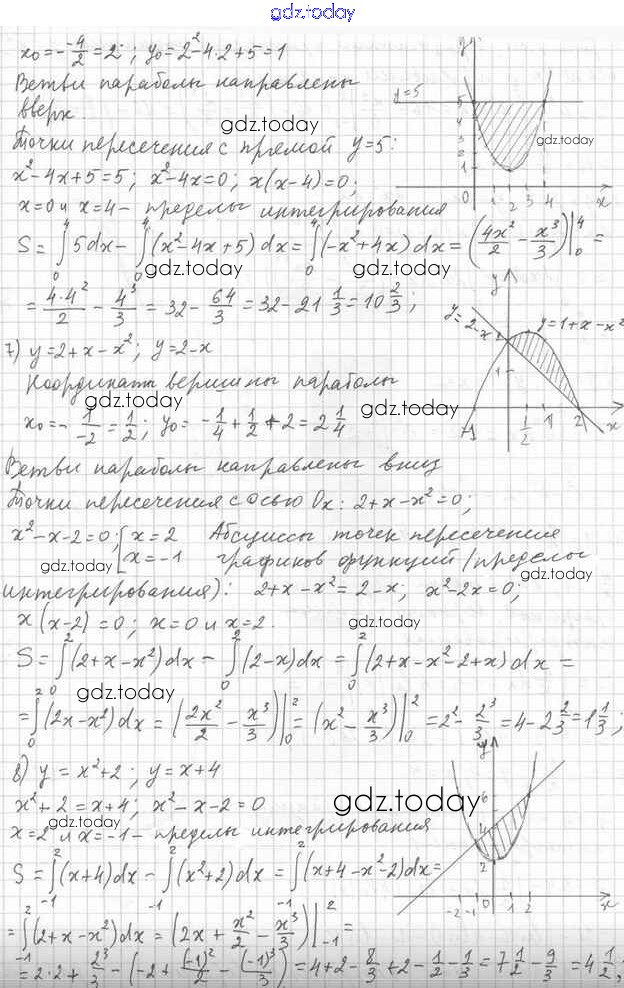 gdz.today
x₀ = -(-4/2) = 2; y₀ = 2² - 4·2 + 5 = 1
Ветви параболы направлены
вверх.
gdz.today
Точки пересечения с прямой y=5:
x² - 4x + 5 = 5; x² - 4x = 0; x(x-4) = 0;
x = 0 и x = 4 - пределы интегрирования
S = ∫₀⁴ 5dx - ∫₀⁴ (x² - 4x + 5) dx = ∫₀⁴ (-x² + 4x) dx = (4x²/2 - x³/3)|₀⁴ =
gdz.today gdz.today
= 4·4²/2 - 4³/3 = 32 - 64/3 = 32 - 21 1/3 = 10 2/3;
y
y=5
5
4
3
2
1
gdz.today
0 1 2 3 4 x
7) y = 2 + x - x²; y = 2 - x
Координаты вершины параболы
x₀ = -1/-2 = 1/2; y₀ = -1/4 + 1/2 + 2 = 2 1/4
gdz.today
y
y=2-x
y=1+x-x²
1
-1 0 1/2 1 2 x
Ветви параболы направлены вниз
Точки пересечения с осью Ox: 2 + x - x² = 0;
x² - x - 2 = 0; [x = 2 Абсциссы точек пересечения
x = -1 графиков функций (пределы
gdz.today gdz.today
интегрирования): 2 + x - x² = 2 - x; x² - 2x = 0;
x(x-2) = 0; x = 0 и x = 2.
gdz.today
S = ∫₀² (2 + x - x²) dx - ∫₀² (2 - x) dx = ∫₀² (2 + x - x² - 2 + x) dx =
gdz.today
= ∫₀² (2x - x²) dx = (2x²/2 - x³/3)|₀² = (x² - x³/3)|₀² = 2² - 2³/3 = 4 - 2 2/3 = 1 1/3;
8) y = x² + 2; y = x + 4
x² + 2 = x + 4; x² - x - 2 = 0
gdz.today
x = 2 и x = -1 - пределы интегрирования
S = ∫₋₁² (x+4) dx - ∫₋₁² (x²+2) dx = ∫₋₁² (x + 4 - x² - 2) dx =
= ∫₋₁² (2 + x - x²) dx = (2x + x²/2 - x³/3)|₋₁² =
= 2·2 + 2³/3 - (-2 + (-1)²/2 - (-1)³/3) = 4 + 2 - 8/3 + 2 - 1/2 - 1/3 = 7 1/2 - 9/3 = 4 1/2;
y
6
4
2
-2 -1 0 1 2 x